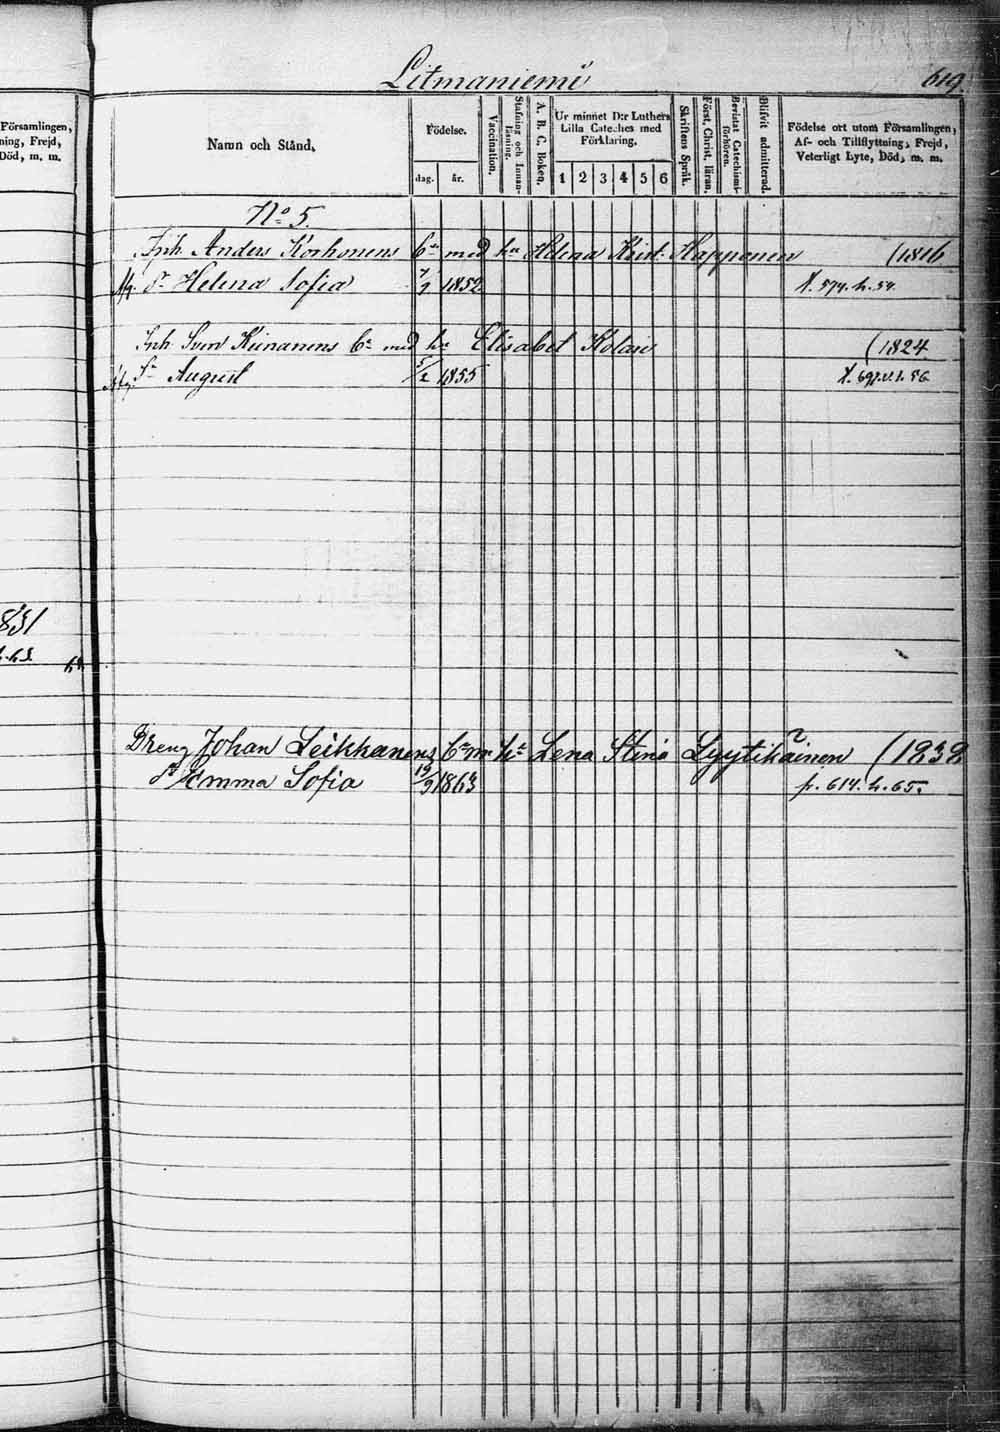 Litmaniemi
619
Församlingen,
ning, Frejd,
Död, m. m.
Namn och Stånd,
Födelse.
dag. år.
Vaccination.
Stafning och Innan-läsning.
A. B. C. Boken.
Ur minnet D:r Luthers
Lilla Cateches med
Förklaring.
1 2 3 4 5 6
Skriftens Språk.
Först. Christ. läran.
Bevistat Catechismi-förhören.
Blifvit admitterad.
Födelse ort utom Församlingen,
Af- och Tillflyttning, Frejd,
Veterligt Lyte, Död, m. m.
No 5.
Inh. Anders Korhonens b:n med hu Helena Krist: Happonen (1816
Helena Sofia 7/9 1852 574. h. 54.
Inh. Sven Kiinanens b:n med hu Elisabet Kolari (1824
August 5/2 1855 56
831
Dreng Johan Leikkanens b:n m h:u Lena Stina Lyytikäinen (1838
Emma Sofia 19/9 1863 p. 614. h. 65.